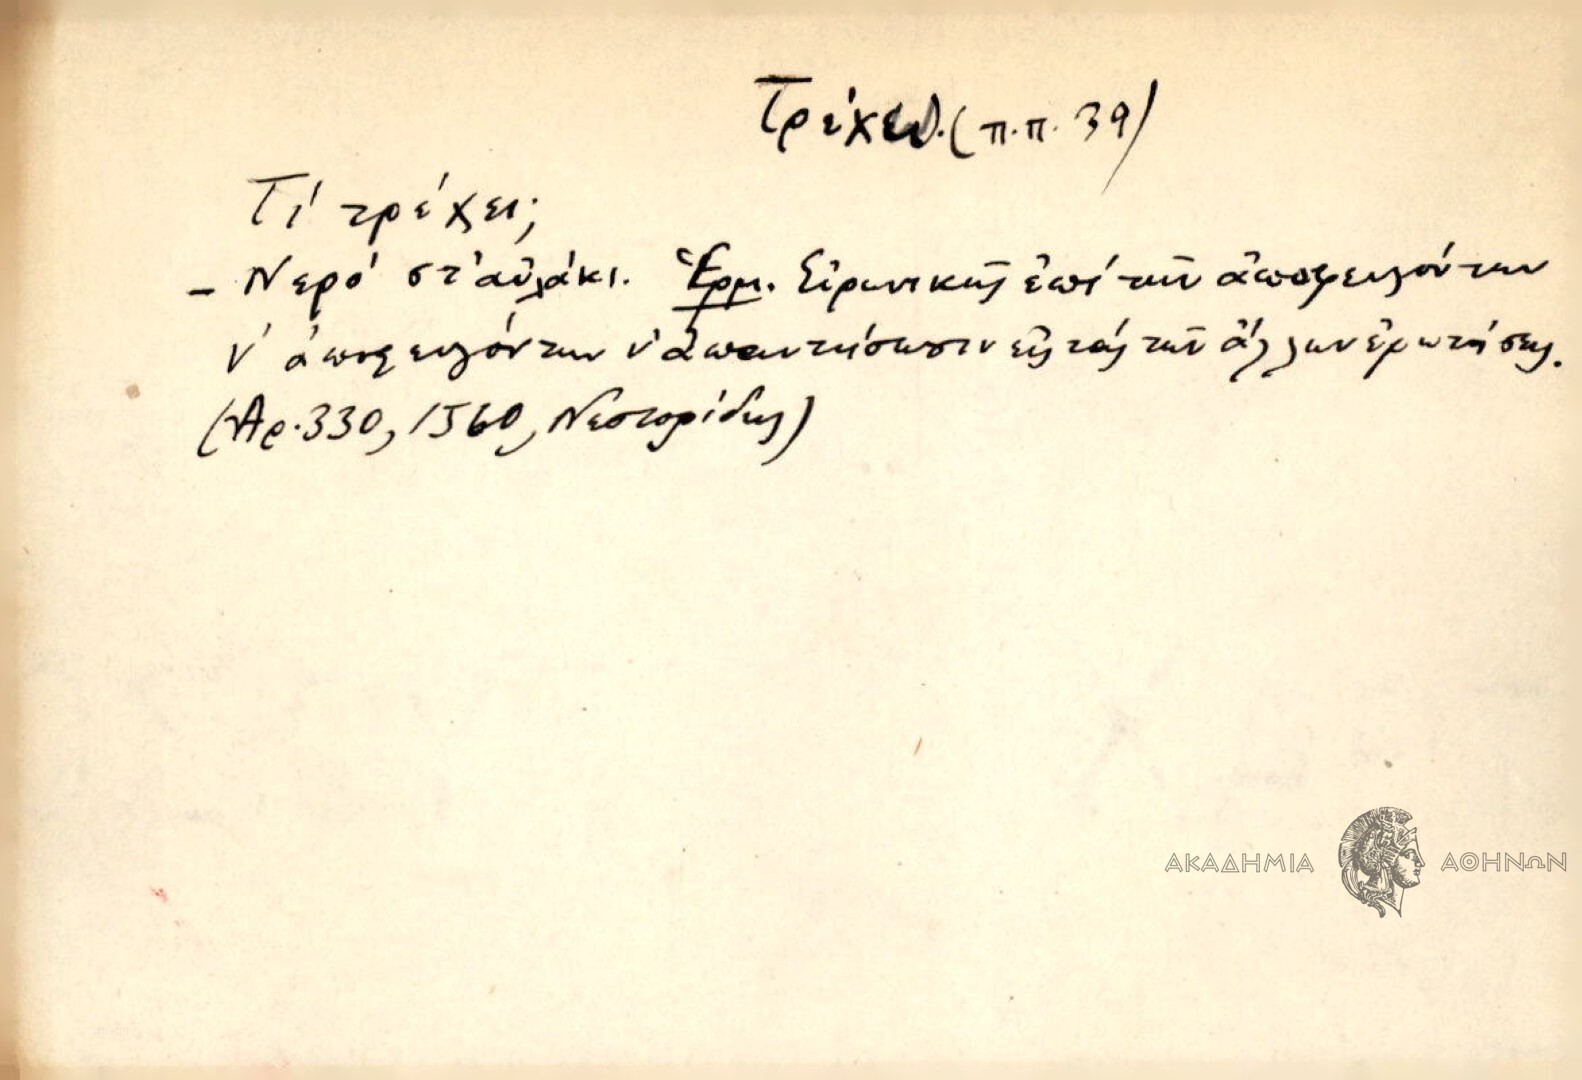 Τρέχω. (π.π. 39)
Τί τρέχει;
- Νερό στ' αὐλάκι. Ἑρμ. Εἰρωνικῶς ἐπί τῶν ἀποφευγόντων
ν' ἀποφευγόντων ν' ἀπαντήσωσιν εἰς τάς τῶν ἄλλων ἐρωτήσεις.
(Ἀρ. 330, 1560, Νεστορίδης)
ΑΚΑΔΗΜΙΑ ΑΘΗΝΩΝ